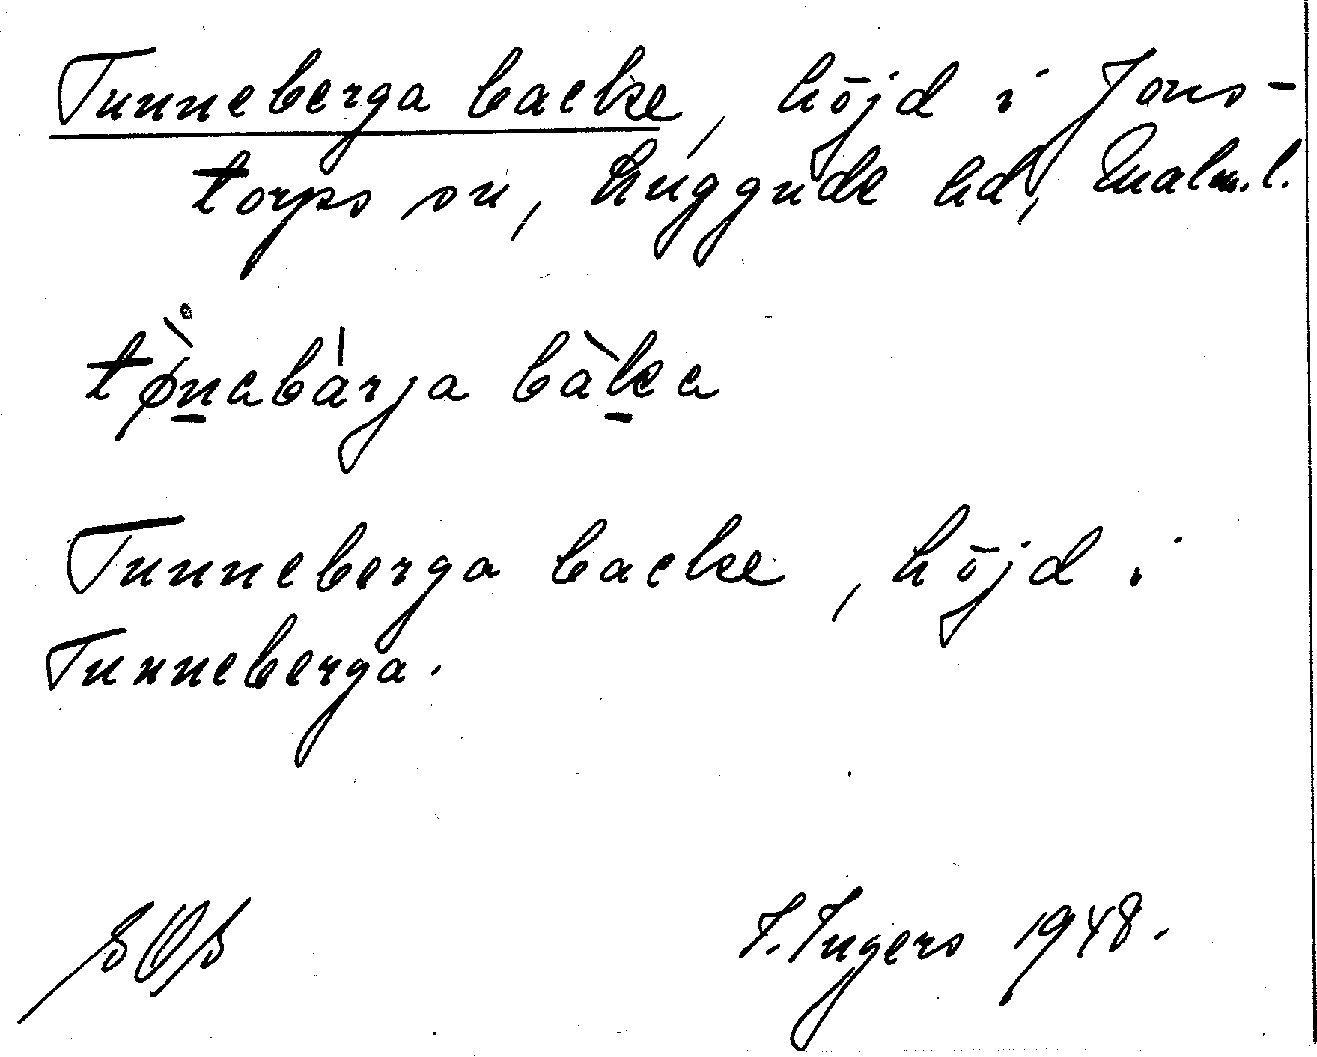 Tunneberga backe, höjd i Jons-
torps sn, Luggude hd, Malm.l.
tø̀nabàrja bàka
Tunneberga backe, höjd i
Tunneberga.
I. Ingers 1948.